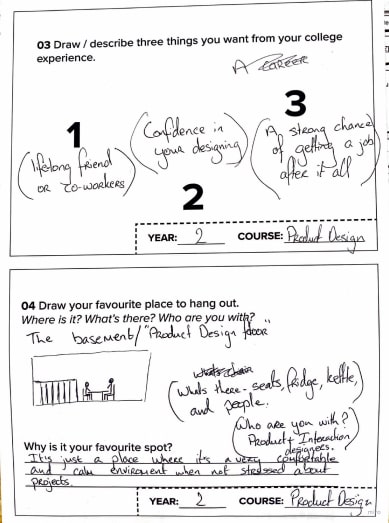 03 Draw / describe three things you want from your college
experience.
A CAREER
1
lifelong friend
OR CO-WORKERS
Confidence in
your designing
2
3
A strong chance
of getting a job
after it all
YEAR: 2 COURSE: Product Design
04 Draw your favourite place to hang out.
Where is it? What's there? Who are you with?
The basement/"Product Design floor"
Whats there - seats, fridge, kettle,
and people.
Who are you with?
Product + Interaction
designees.
Why is it your favourite spot?
It's just a place where it's a very comfortable
and calm enviroment when not stressed about
projects.
YEAR: 2 COURSE: Product Design